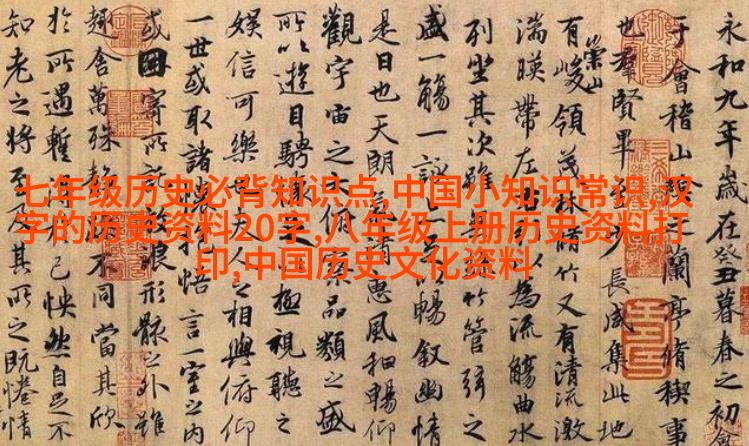 七年级历史必背知识点,中国小知识常识,汉
字的历史资料20字,八年级上册历史资料打
印,中国历史文化资料
永和九年歲在癸丑暮春之初會
于會稽山蘭亭脩稧事
也羣賢畢少長咸集此地
有崇山峻領茂林脩竹又有清流激
湍暎帶左以為流觴曲水
列坐其次雖竹管弦之
盛一觴一詠以暢叙幽情
是日也天朗清惠風和暢仰
觀宇宙之俯品類之盛
所以遊目騁極視聽之
娛信可樂人之相與俯仰
一世或取諸悟言一室之內
或因寄所浪形骸之外雖
趣舍萬殊不同當其欣
於所遇暫己怏然自足不
知老之將至其所之既惓情